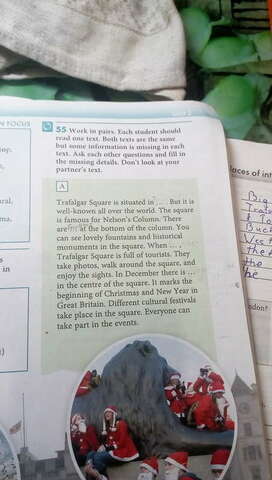 N FOCUS
55 Work in pairs. Each student should
read one text. Both texts are the same
but some information is missing in each
text. Ask each other questions and fill in
the missing details. Don't look at your
partner's text.
A
Trafalgar Square is situated in ... . But it is
well-known all over the world. The square
is famous for Nelson's Column. There
are ... at the bottom of the column. You
can see lovely fountains and historical
monuments in the square. When ... ,
Trafalgar Square is full of tourists. They
take photos, walk around the square, and
enjoy the sights. In December there is ...
in the centre of the square. It marks the
beginning of Christmas and New Year in
Great Britain. Different cultural festivals
take place in the square. Everyone can
take part in the events.
laces of int
Big
the